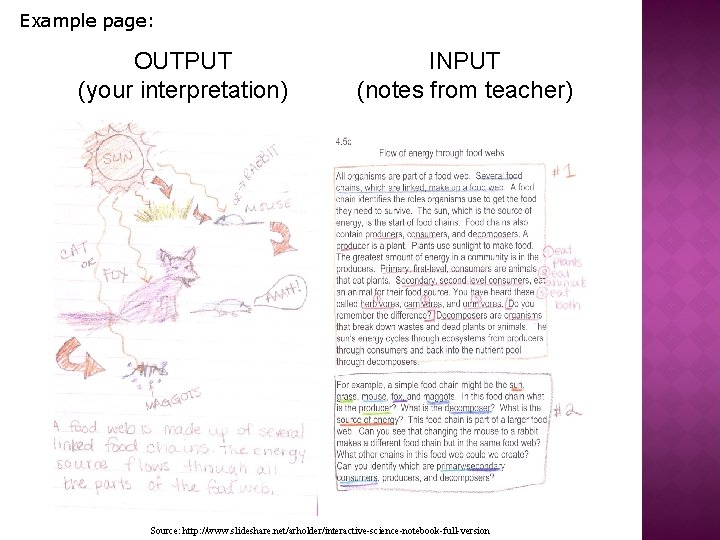 Example page:
OUTPUT
(your interpretation)
INPUT
(notes from teacher)
SUN
OR → RABBIT
MOUSE
CAT
OR
FOX
AHH!
MAGGOTS
A food web is made up of several
linked food chains. The energy
source flows through all
the parts of the food web.
4.5c
Flow of energy through food webs
All organisms are part of a food web. Several food
chains, which are linked, make up a food web. A food
chain identifies the roles organisms use to get the food
they need to survive. The sun, which is the source of
energy, is the start of food chains. Food chains also
contain producers, consumers, and decomposers. A
producer is a plant. Plants use sunlight to make food.
The greatest amount of energy in a community is in the
producers. Primary, first-level, consumers are animals
that eat plants. Secondary, second-level consumers, eat
an animal for their food source. You have heard these
called herbivores, carnivores, and omnivores. Do you
remember the difference? Decomposers are organisms
that break down wastes and dead plants or animals. The
sun's energy cycles through ecosystems from producers
through consumers and back into the nutrient pool
through decomposers.
#1
① eat
plants
② eat
animals
③ eat
both
For example, a simple food chain might be the sun,
grass, mouse, fox, and maggots. In this food chain what
is the producer? What is the decomposer? What is the
source of energy? This food chain is part of a larger food
web. Can you see that changing the mouse to a rabbit
makes a different food chain but in the same food web?
What other chains in this food web could we create?
Can you identify which are primary/secondary
consumers, producers, and decomposers?
#2
Source: http://www.slideshare.net/arholder/interactive-science-notebook-full-version